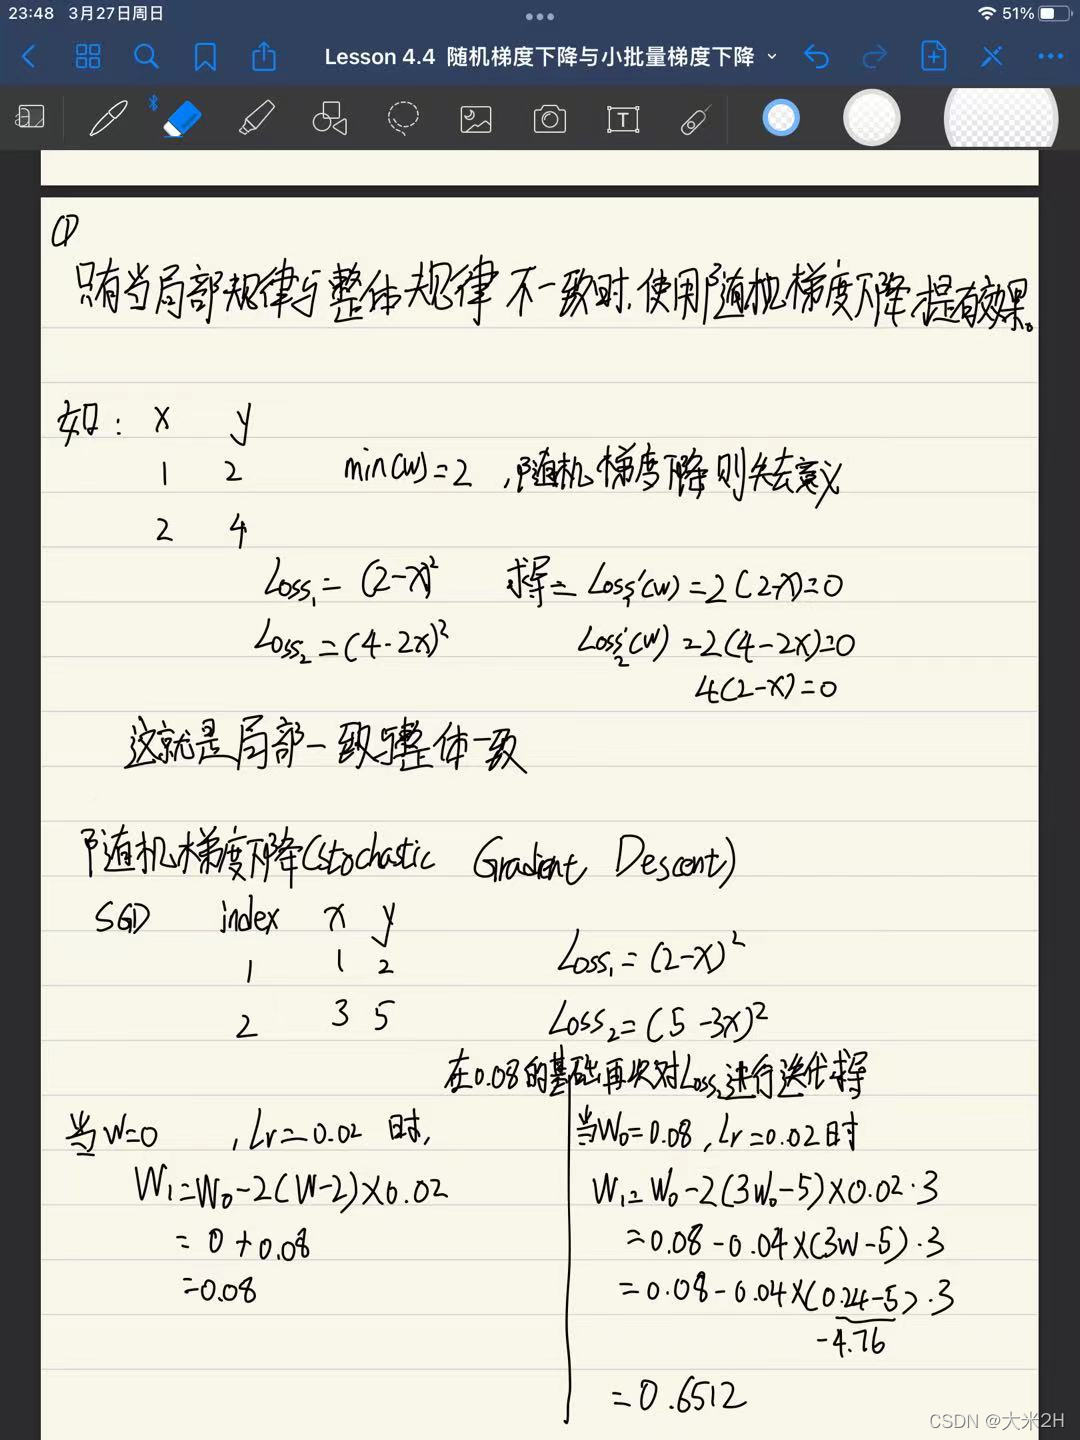 23:48 3月27日周日
51%
Lesson 4.4 随机梯度下降与小批量梯度下降
①
只有当局部规律与整体规律不一致时,使用随机梯度下降才有效果。
如: x y
1 2 min(w)=2 ,随机梯度下降则失去意义
2 4
Loss₁=(2-x)² 求导= Loss₁'(w)=2(2-x)=0
Loss₂=(4-2x)² Loss₂'(w)=2(4-2x)=0
4(2-x)=0
这就是局部一致与整体一致
随机梯度下降(Stochastic Gradient Descent)
SGD index x y
1 1 2 Loss₁=(2-x)²
2 3 5 Loss₂=(5-3x)²
在0.08的基础再次对Loss₂进行迭代求导
当W=0 ,Lr=0.02 时,
W₁=W₀-2(W-2)×0.02
=0+0.08
=0.08
当W₀=0.08,Lr=0.02时
W₁=W₀-2(3W₀-5)×0.02·3
=0.08-0.04×(3W-5)·3
=0.08-0.04×(0.24-5)·3
-4.76
=0.6512
CSDN @大米2H